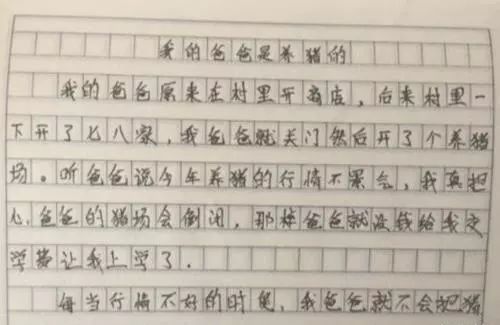 我的爸爸是养猪的
我的爸爸原来在村里开商店,后来村里一
下开了七八家,我爸爸就关门然后开了个养猪
场。听爸爸说今年养猪的行情不景气,我真担
心爸爸的猪场会倒闭,那样爸爸就没钱给我交
学费让我上学了.
每当行情不好的时候,我爸爸就不会把猪